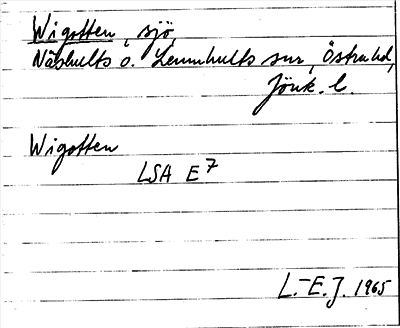 Wigotten, sjö
Näshults o. Lemnhults snr, Östra hd,
Jönk. l.
Wigotten
LSA E7
L.-E.J. 1965